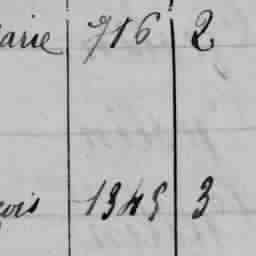 arie 716 2
çois 1345 3